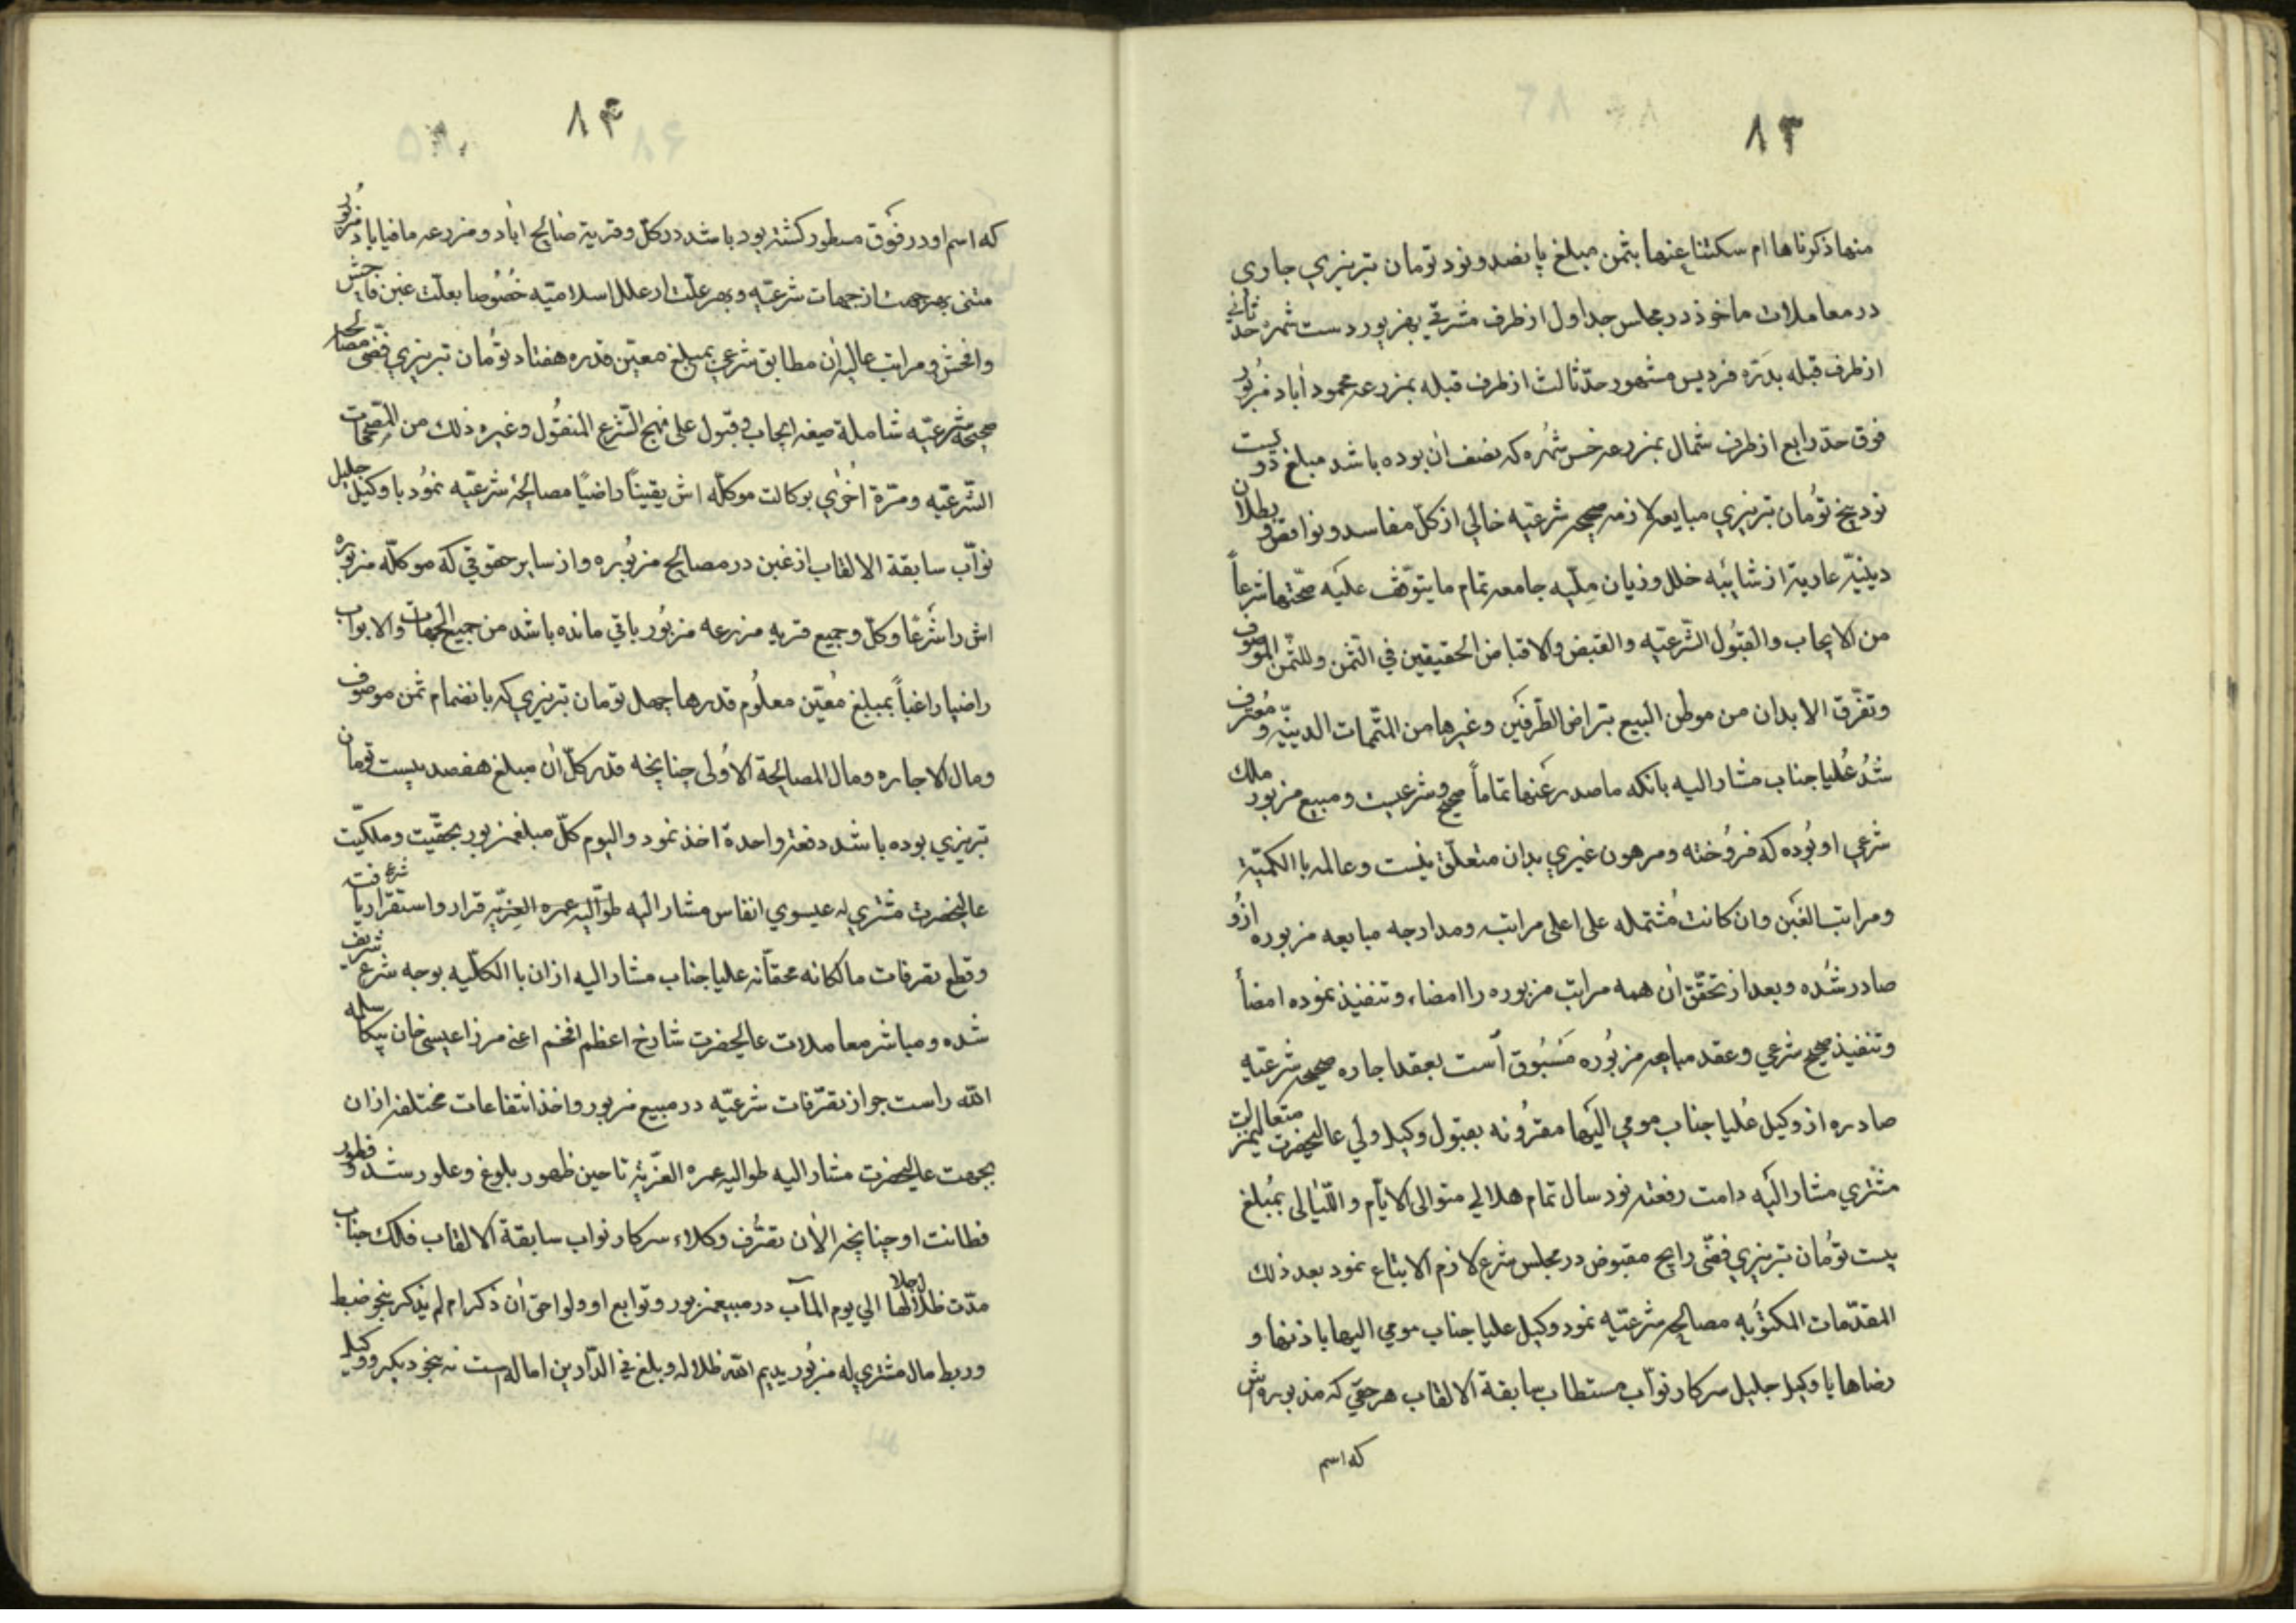 ۸۳
منها ذکرناها ام سکتنا عنها بثمن مبلغ پانصد و نود تومان تبریزی جاری
در معاملات ماخوذ در مجلس حد اول از طرف شرقی بهزبور دست شمره حد ثانی
از طرف قبله بدره فردیس مشهور حد ثالث از طرف قبله بمزرعه محمود آباد مزبور
فوق حد رابع از طرف شمال بمزرعه خس شمره که نصف آن بوده باشد مبلغ دویست
نود پنج تومان تبریزی مبایعه لازمه صحیحه شرعیه خالی از کل مفاسد و نواقض و بطلان
دینیه عاریة از شایبه خلل و زیان ملیه جامعه تمام ما یتوقف علیه صحتها شرعاً
من الایجاب والقبول الشرعیه والقبض والاقباض الحقیقین فی الثمن وللثمن الموصوف
وتفرق الابدان من موطن البیع بتراض الطرفین وغیرها من المتممات الدینیه و معترف
شد علیا جناب مشار الیه بانکه ما صدر عنها تماماً صحیح و شرعیست و مبیع مزبور ملک
شرعی او بوده که فروخته و مرهون غیری بدان متعلق نیست و عالمه با الکمیة
ومراتب الغبن وان کانت مشتمله علی اعلی مراتبه و مدارجه مبایعه مزبوره ازو
صادر شده و بعد از تحقق آن همه مراتب مزبوره را امضاء و تنفیذ نموده امضأ
وتنفیذ صحیح شرعی و عقد مبایعه مزبوره مسبوق است بعقد اجاره صحیحه شرعیه
صادره از وکیل علیا جناب مومی الیها مقرونه بقبول وکیل ولی عالیحضرت متعالیمنزلت
مشتری مشار الیه دامت رفعته نود سال تمام هلالی متوالی الایام واللیالی بمبلغ
بیست تومان تبریزی فضی رایج مقبوض در مجلس شرع لازم الاتباع نمود بعد ذلک
المقدمات المکتوبه مصالحه شرعیه نمود وکیل علیا جناب مومی الیها باذنها و
رضاها با وکیل جلیل سرکار نواب مستطاب سابقة الالقاب هر حقی که مزبوره اش
که اسم
۸۴
که اسم او در فوق مسطور کشته بود باشد در کل و قریة صالح اباد و مزرعه مافیاباد مزبور
متنی بهر جهت از جهات شرعیه و بهر علت از علل اسلامیه خصوصا بعلت غبن فاحش
وافحش و مراتب عالیه آن مطابق شرعی بمبلغ معین قدره هفتاد تومان تبریزی فضی مصالحه
صحیحه شرعیه شاملة صیغه ایجاب و قبول علی نهج الشرع المنقول وغیره ذلک من المصححات
الشرعیه و مرة اخری بوکالت موکله اش یقیناً راضیًا مصالحهٔ شرعیه نمود با وکیل جلیل
نواب سابقة الالقاب از غبن در مصالح مزبوره و از سایر حقوقی که موکله مزبوره
اش را شرعًا و کل و جمیع قریه مزرعه مزبور باقی مانده باشد من جمیع الجهات والابواب
راضیا راغباً بمبلغ معین معلوم قدرها چهل تومان تبریزی که بانضمام ثمن موصوف
ومال الاجاره ومال المصالحة الاولی چنانچه قدر کل آن مبلغ هفصد بیست تومان
تبریزی بوده باشد دفعة واحدة اخذ نمود والیوم کل مبلغ مزبور بحقیت و ملکیت
عالیحضرت مشتری له عیسوی انفاس مشار الیه طوالیه عمره العزیه قرار و استقرار یافت شرع
وقطع تصرفات مالکانه محقانه علیا جناب مشار الیه از ان بالکلیه بوجه شرع شریف
شده و مباشر معاملات عالیحضرت شارخ اعظم افخم اعنی مرزا عیسی خان بیکا سلمه
الله راست جواز تصرفات شرعیه در مبیع مزبور و اخذ انتفاعات مختلفه از ان
بجهت عالیحضرت مشار الیه طوالیه عمره العزیة تا حین ظهور بلوغ و علو رشد و فطور
فطانت او چنانچه الآن تصرف وکلاء سرکار نواب سابقة الالقاب فلک جناب
مدت ظلال اجلالها الی یوم المآب در مبیع مزبور و توابع او و لواحق آن ذکر ام لم یذکر بنحو ضبط
و ربط مال مشتری له مزبور یدیم الله ظلاله وبلغ فی الدارین اماله است نه بنحو دیکر و وکیل